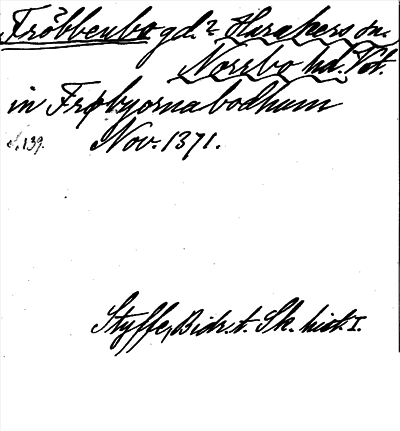 Fröbbenbo gd.? Harakers sn.
Norrbo hd. Vst.
in Frøbjornabodhum
s. 139. Nov. 1371.
Styffe, Bidr. t. Sk. hist. I.